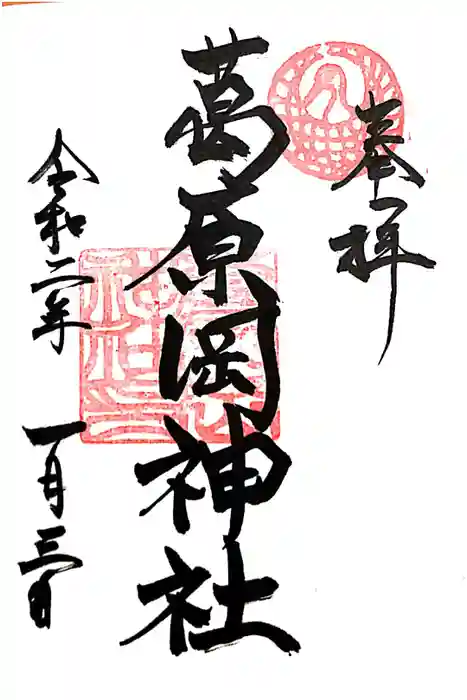 奉拝
葛原岡神社
令和二年 一月三日